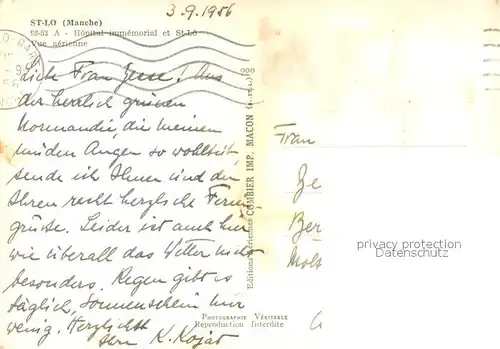 3.9.1956
ST-LO (Manche)
98-53 A - Hôpital immémorial et St-Lô
Vue aérienne
Liebe Frau Jesse! Aus
der herrlich grünen
Normandie, die meinen
müden Augen so wohltut,
sende ich Ihnen und den
Ihren recht herzliche Fern
grüße. Leider ist auch hier
wie überall das Wetter nicht
besonders. Regen gibt es
täglich, Sonnenschein nur
wenig. Herzlichst
Ihr K. Kojat
Editions aériennes COMBIER IMP. MACON
PHOTOGRAPHIE VÉRITABLE
Reproduction Interdite
Frau
Je
Ber
Molt
privacy protection
Datenschutz